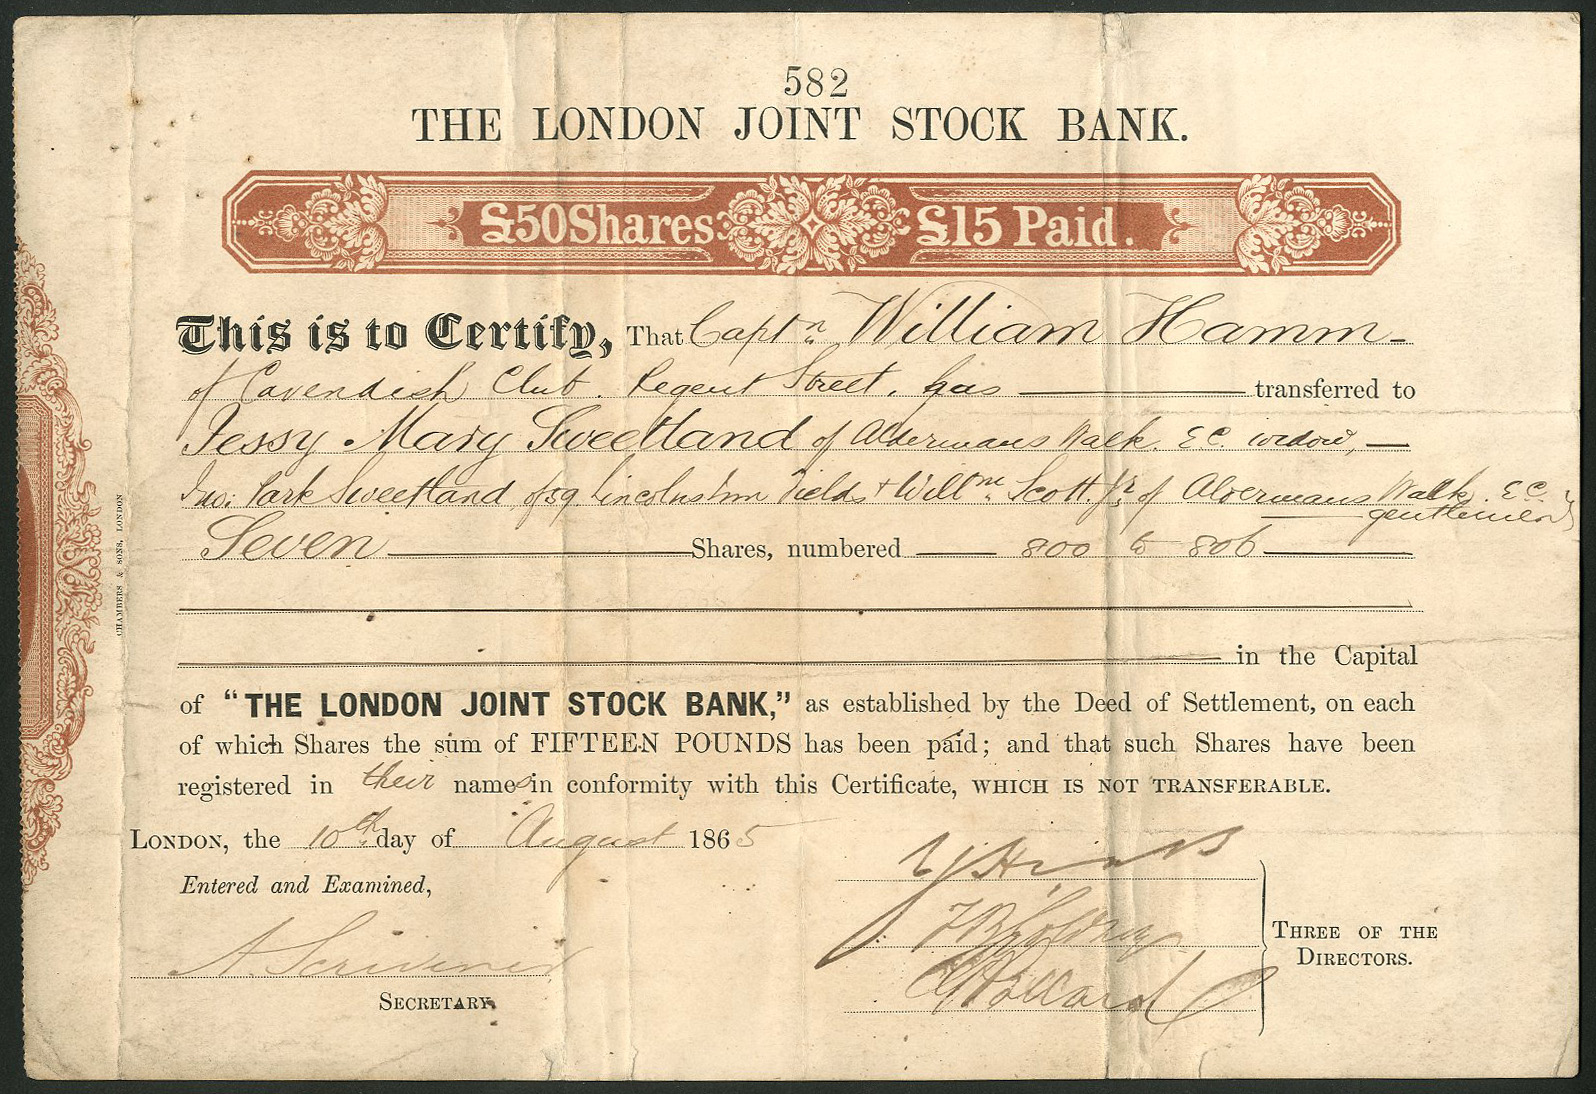 582
THE LONDON JOINT STOCK BANK.
£50 Shares £15 Paid.
This is to Certify, That Captn William Hamm
of Cavendish Club. Regent Street, has transferred to
Jessy Mary Sweetland of Aldermans Walk. E.C. widow,
Jno: Park Sweetland, of 59. Lincolns Inn Fields & Willm Scott. Jr of Aldermans Walk. E.C.
gentlemen
Seven Shares, numbered 800 to 806
in the Capital
of "THE LONDON JOINT STOCK BANK," as established by the Deed of Settlement, on each
of which Shares the sum of FIFTEEN POUNDS has been paid; and that such Shares have been
registered in their names in conformity with this Certificate, WHICH IS NOT TRANSFERABLE.
LONDON, the 10th day of August 1865
Entered and Examined,
A. Scrivener
SECRETARY.
THREE OF THE
DIRECTORS.
CHAMBERS & SONS, LONDON